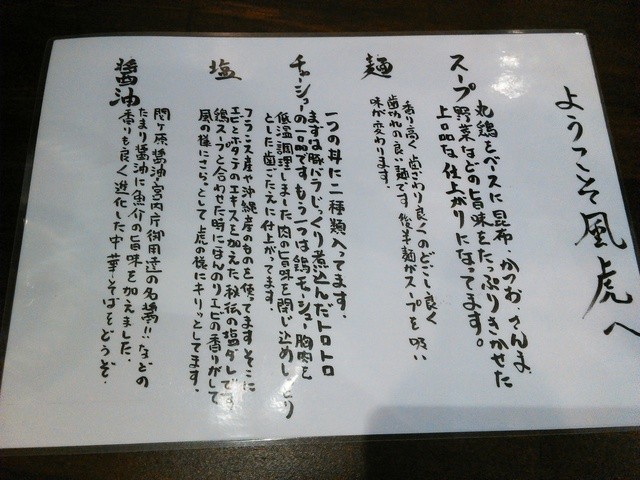 ようこそ風虎へ
スープ
丸鶏をベースに昆布、かつお、さんま、
野菜などの旨味をたっぷりきかせた
上品な仕上がりになってます。
麺
香り高く歯ざわり良くのどごし良く
歯切れの良い麺です。後半麺がスープを吸い
味が変わります。
チャーシュー
一つの丼に二種類入ってます。
まずは豚バラじっくり煮込んだトロトロ
の一品ですもう一つは鶏モーシュー胸肉を
低温調理しました肉の旨味を閉じ込めしっとり
とした歯ごたえに仕上がってます。
塩
フランス産や沖縄産のものを使ってますそこに
エビとホタテのエキスを加えた秘伝の塩ダレです
鶏スープと合わせた時にほんのりエビの香りがして
風の様にさらっとして虎の様にキリッとしてます。
醤油
関ヶ原醤油・宮内庁御用達の名醤!!などの
たまり醤油に魚介の旨味を加えました。
香りも良く進化した中華そばをどうぞ。